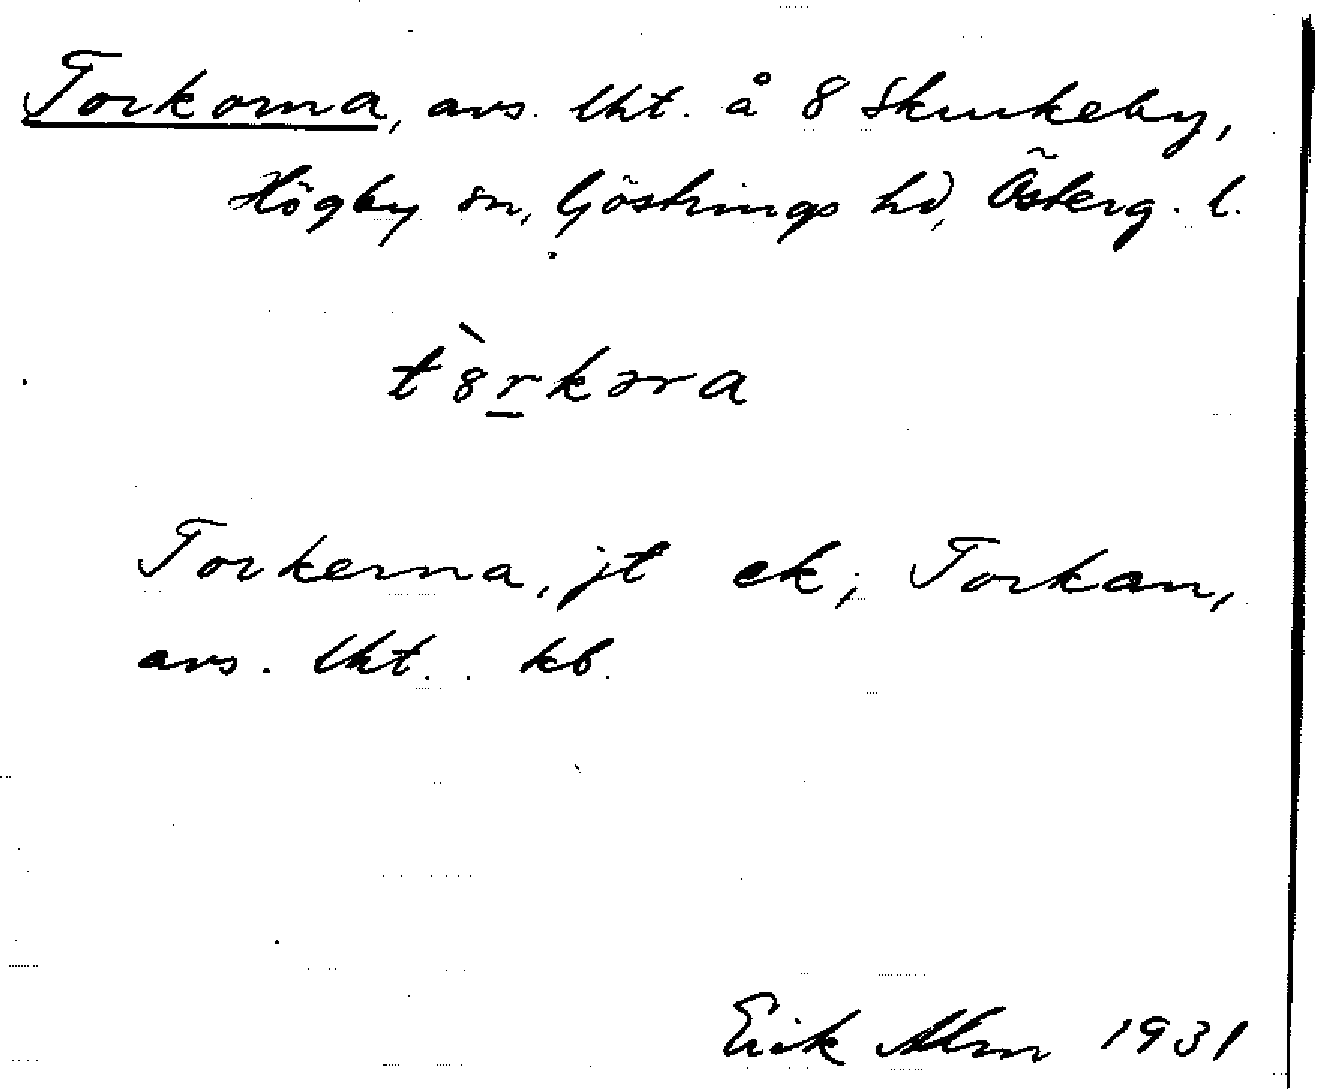 Torkorna, avs. lht. å 8 Skurkeby,
Högby sn, Göstrings hd, Österg. l.
t8̀r̲kәra
Torkerna, jt ek; Torkan,
avs. lht. kb.
Erik Alm 1931